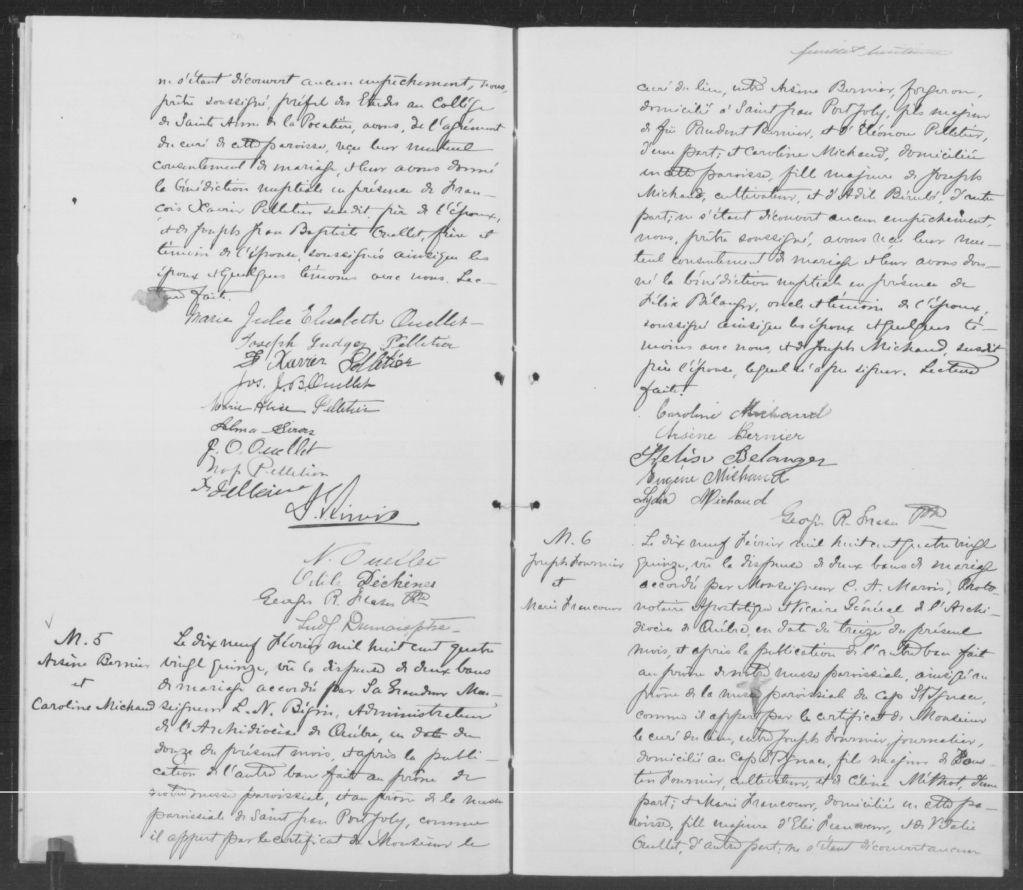 ne s'étant découvert aucun empêchement, nous,
prêtre soussigné, préfet des Etudes au Collège
de Sainte Anne de la Pocatière, avons, de l'agrément
du curé de cette paroisse, reçu leur mutuel
consentement de mariage et leur avons donné
la bénédiction nuptiale en présence de Fran-
çois Xavier Pelletier susdit, père de l'époux,
et de Joseph Jean Baptiste Ouellet, frère et
témoin de l'épouse, soussignés ainsi que les
époux et quelques témoins avec nous. Lec-
ture faite.
Maria Julie Elisabeth Ouellet
Joseph Pelletier
F Xavier Pelletier
Jos. J. B. Ouellet
Marie Pelletier
Alma
J. O. Ouellet
Pelletier
Pelletier
N. Ouellet
Odile Dechènes
Georges R. Fraser Ptre
Ludg Dumais ptre
M. 5
Arsène Bernier
et
Caroline Michaud
Le dix neuf Février mil huit cent quatre
vingt quinze, vu la dispense de deux bans
de mariage accordée par Sa Grandeur Mon-
seigneur L. N. Bégin, Administrateur
de l'Archidiocèse de Québec, en date du
douze du présent mois, et après la publi-
cation de l'autre ban fait au prône de
notre messe paroissiale, et au prône de la messe
paroissiale de Saint Jean Port Joly, comme
il appert par le certificat de Monsieur le
feuillet
curé du lieu, entre Arsène Bernier, forgeron,
domicilié à Saint Jean Port Joly, fils majeur
de feu Prudent Bernier, et d'Eléonore Pelletier,
d'une part; et Caroline Michaud, domiciliée
en cette paroisse, fille majeure de Joseph
Michaud, cultivateur, et d'Adèle Bérubé, d'autre
part; ne s'étant découvert aucun empêchement,
nous, prêtre soussigné, avons reçu leur mu-
tuel consentement de mariage et leur avons don-
né la bénédiction nuptiale en présence de
Félix Bélanger, oncle et témoin de l'époux,
soussigné ainsi que les époux et quelques té-
moins avec nous, et de Joseph Michaud, susdit
père l'épouse, lequel n'a pu signer. Lecture
faite.
Caroline Michaud
Arsène Bernier
Felix Belanger
Eugène Michaud
Lydia Michaud
Georges R. Fraser Ptre
M. 6
Joseph Fournier
et
Marie Francoeur
Le dix neuf Février mil huit cent quatre vingt
quinze, vu la dispense de deux bans de mariage
accordée par Monseigneur C. A. Marois, Proto-
notaire Apostolique et Vicaire Général de l'Archi-
diocèse de Québec, en date du treize du présent
mois, et après la publication de l'autre ban fait
au prône de notre messe paroissiale, ainsi qu'au
prône de la messe paroissiale du Cap St Ignace,
comme il appert par le certificat de Monsieur
le curé du lieu, entre Joseph Fournier journalier,
domicilié au Cap St Ignace, fils majeur de
Fournier, cultivateur, et de Célina Méthot, d'une
part; et Marie Francoeur, domiciliée en cette pa-
roisse, fille majeure d'Elie Francoeur, et de Vitalie
Ouellet, d'autre part; ne s'étant découvert aucun